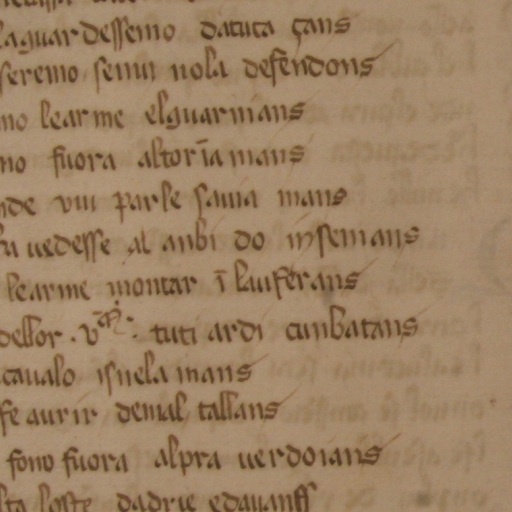 laguardessemo datuta çans
seremo senui nola defendons
mo learme elguarmans
mo fuora altorīa mans
nde vui parle sauia mans
fu uedesse al anbi do insemans
learme montar ī lauferans
dellor . v tuti ardi conbatans
caualo isnela mans
fe aurir denual tallans
fono fuora alpra uerdoians
loste dadrie edauanss